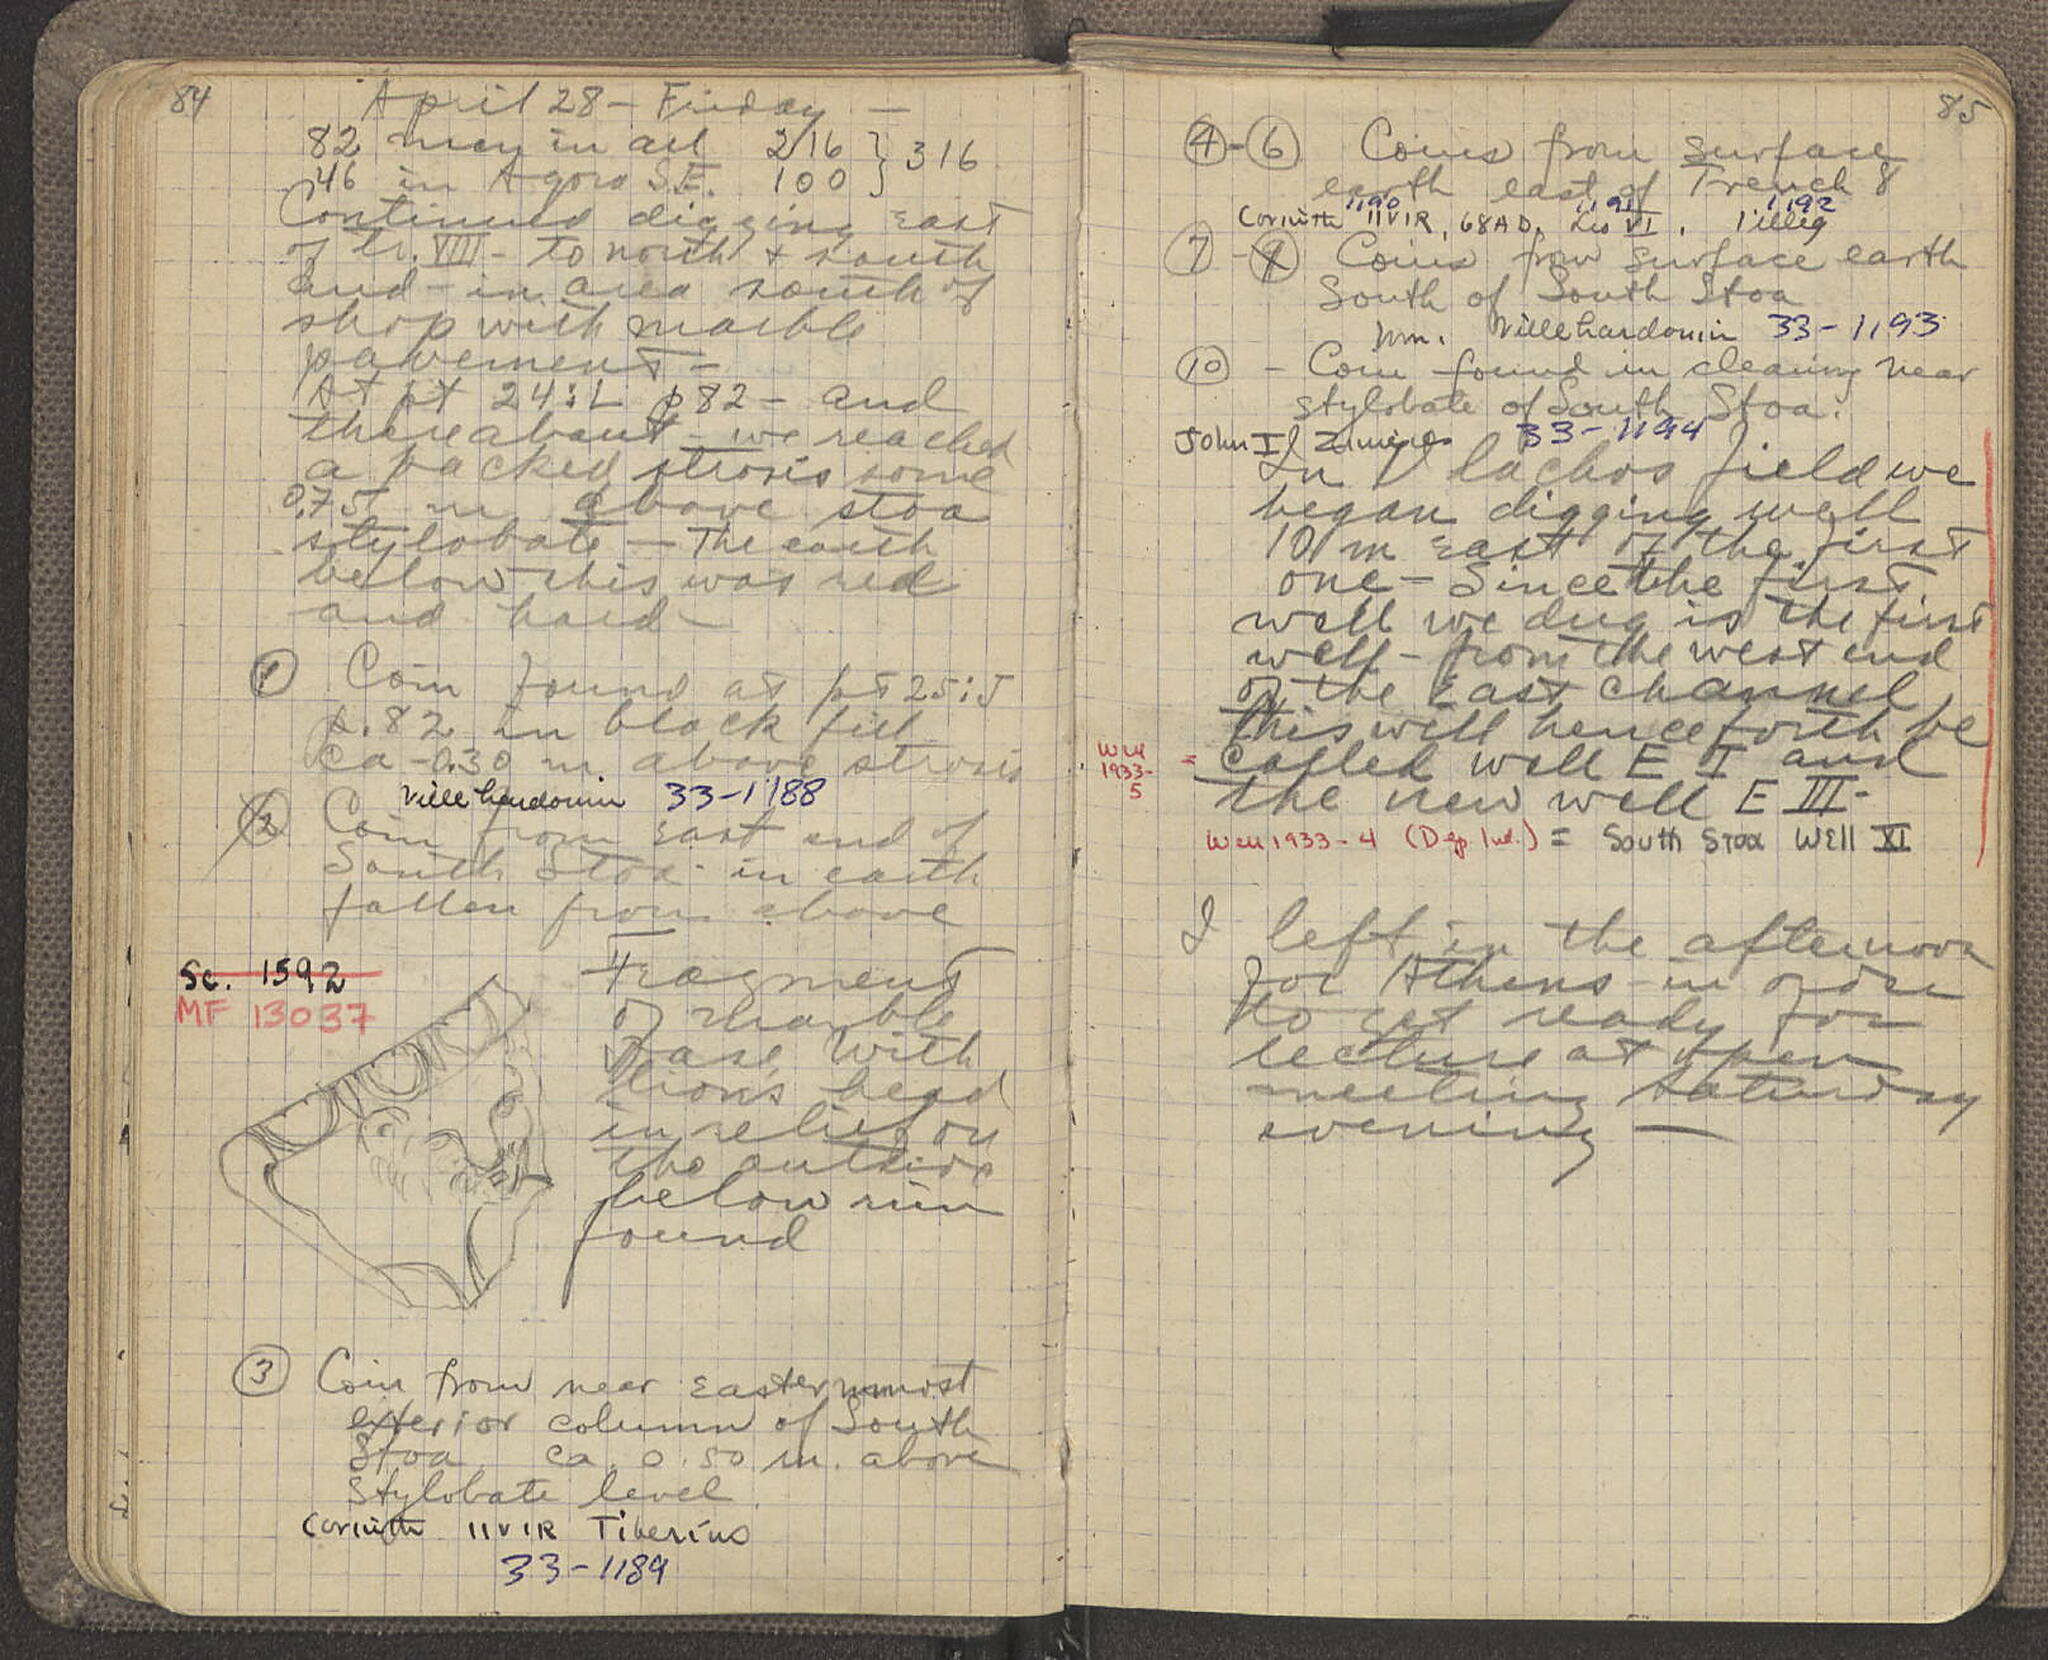 84
April 28 - Friday -
82 men in all 216 } 316
46 in Agora S.E. 100
Continued digging east
of tr. VIII - to north + south
and - in area south of
shop with marble
pavement -
At pt 24:L p82 - and
thereabout - we reached
a packed strosis some
0.75 m above stoa
stylobate - The earth
below this was red
and hard -
1 Coin found at pt 25:J
p.82 in black fill
ca - 0.30 m. above strosis
Villehardouin 33-1188
2 Coin from east end of
South Stoa - in earth
fallen from above
Sc. 1592
MF 13037
Fragment
of marble
vase with
lion's head
in relief on
the outside
below rim
found
3 Coin from near easternmost
exterior column of South
Stoa ca. 0.50 m. above
stylobate level
Corinth IIVIR Tiberius
33-1189
85
4-6 Coins from surface
earth east of Trench 8
1190 1191 1192
Corinth IIVIR, 68 AD, Leo VI, 1 illeg
7-9 Coins from surface earth
South of South Stoa
Wm. Villehardouin 33-1193
10 - Coin found in cleaning near
stylobate of South Stoa.
John I Zimisces 33-1194
In Vlachos field we
began digging well
10 m east of the first
one - Since the first
well we dug is the first
well - from the west end
of the East channel
this will henceforth be
Well 1933-5 = called well E I and
the new well E III -
Well 1933-4 (Dep. Ind.) = South Stoa Well XI
I left in the afternoon
for Athens - in order
to get ready for
lecture at open
meeting Saturday
evening -